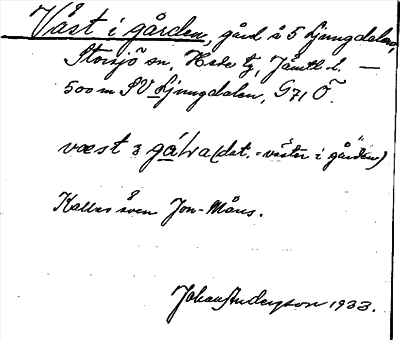 Väst i gården, gård å S Ljungdalen,
Storsjö sn, Hede tg, Jämtl. l. —
500 m SV Ljungdalen, G71 Ö.
væst ɜ gálva (dat. = väster i gården)
Kallas även Jon-Måns.
Johan Anderson 1933.